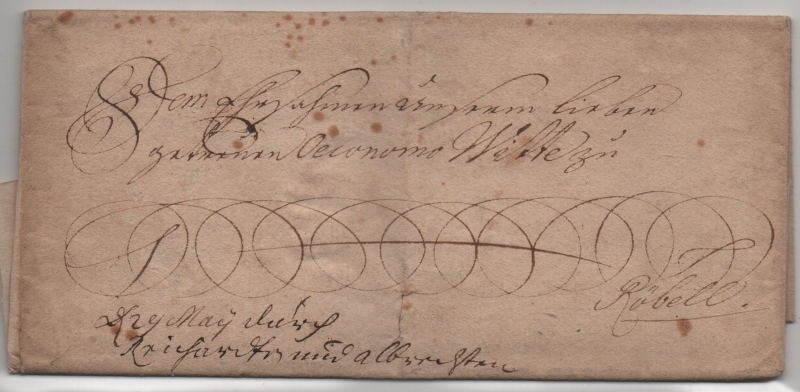 Dem Ehrsahmen Unserm lieben
getreuen Oeconomo Witte zu
Röbell.
D 29 Maÿ durch
Reichardt und Albrechten